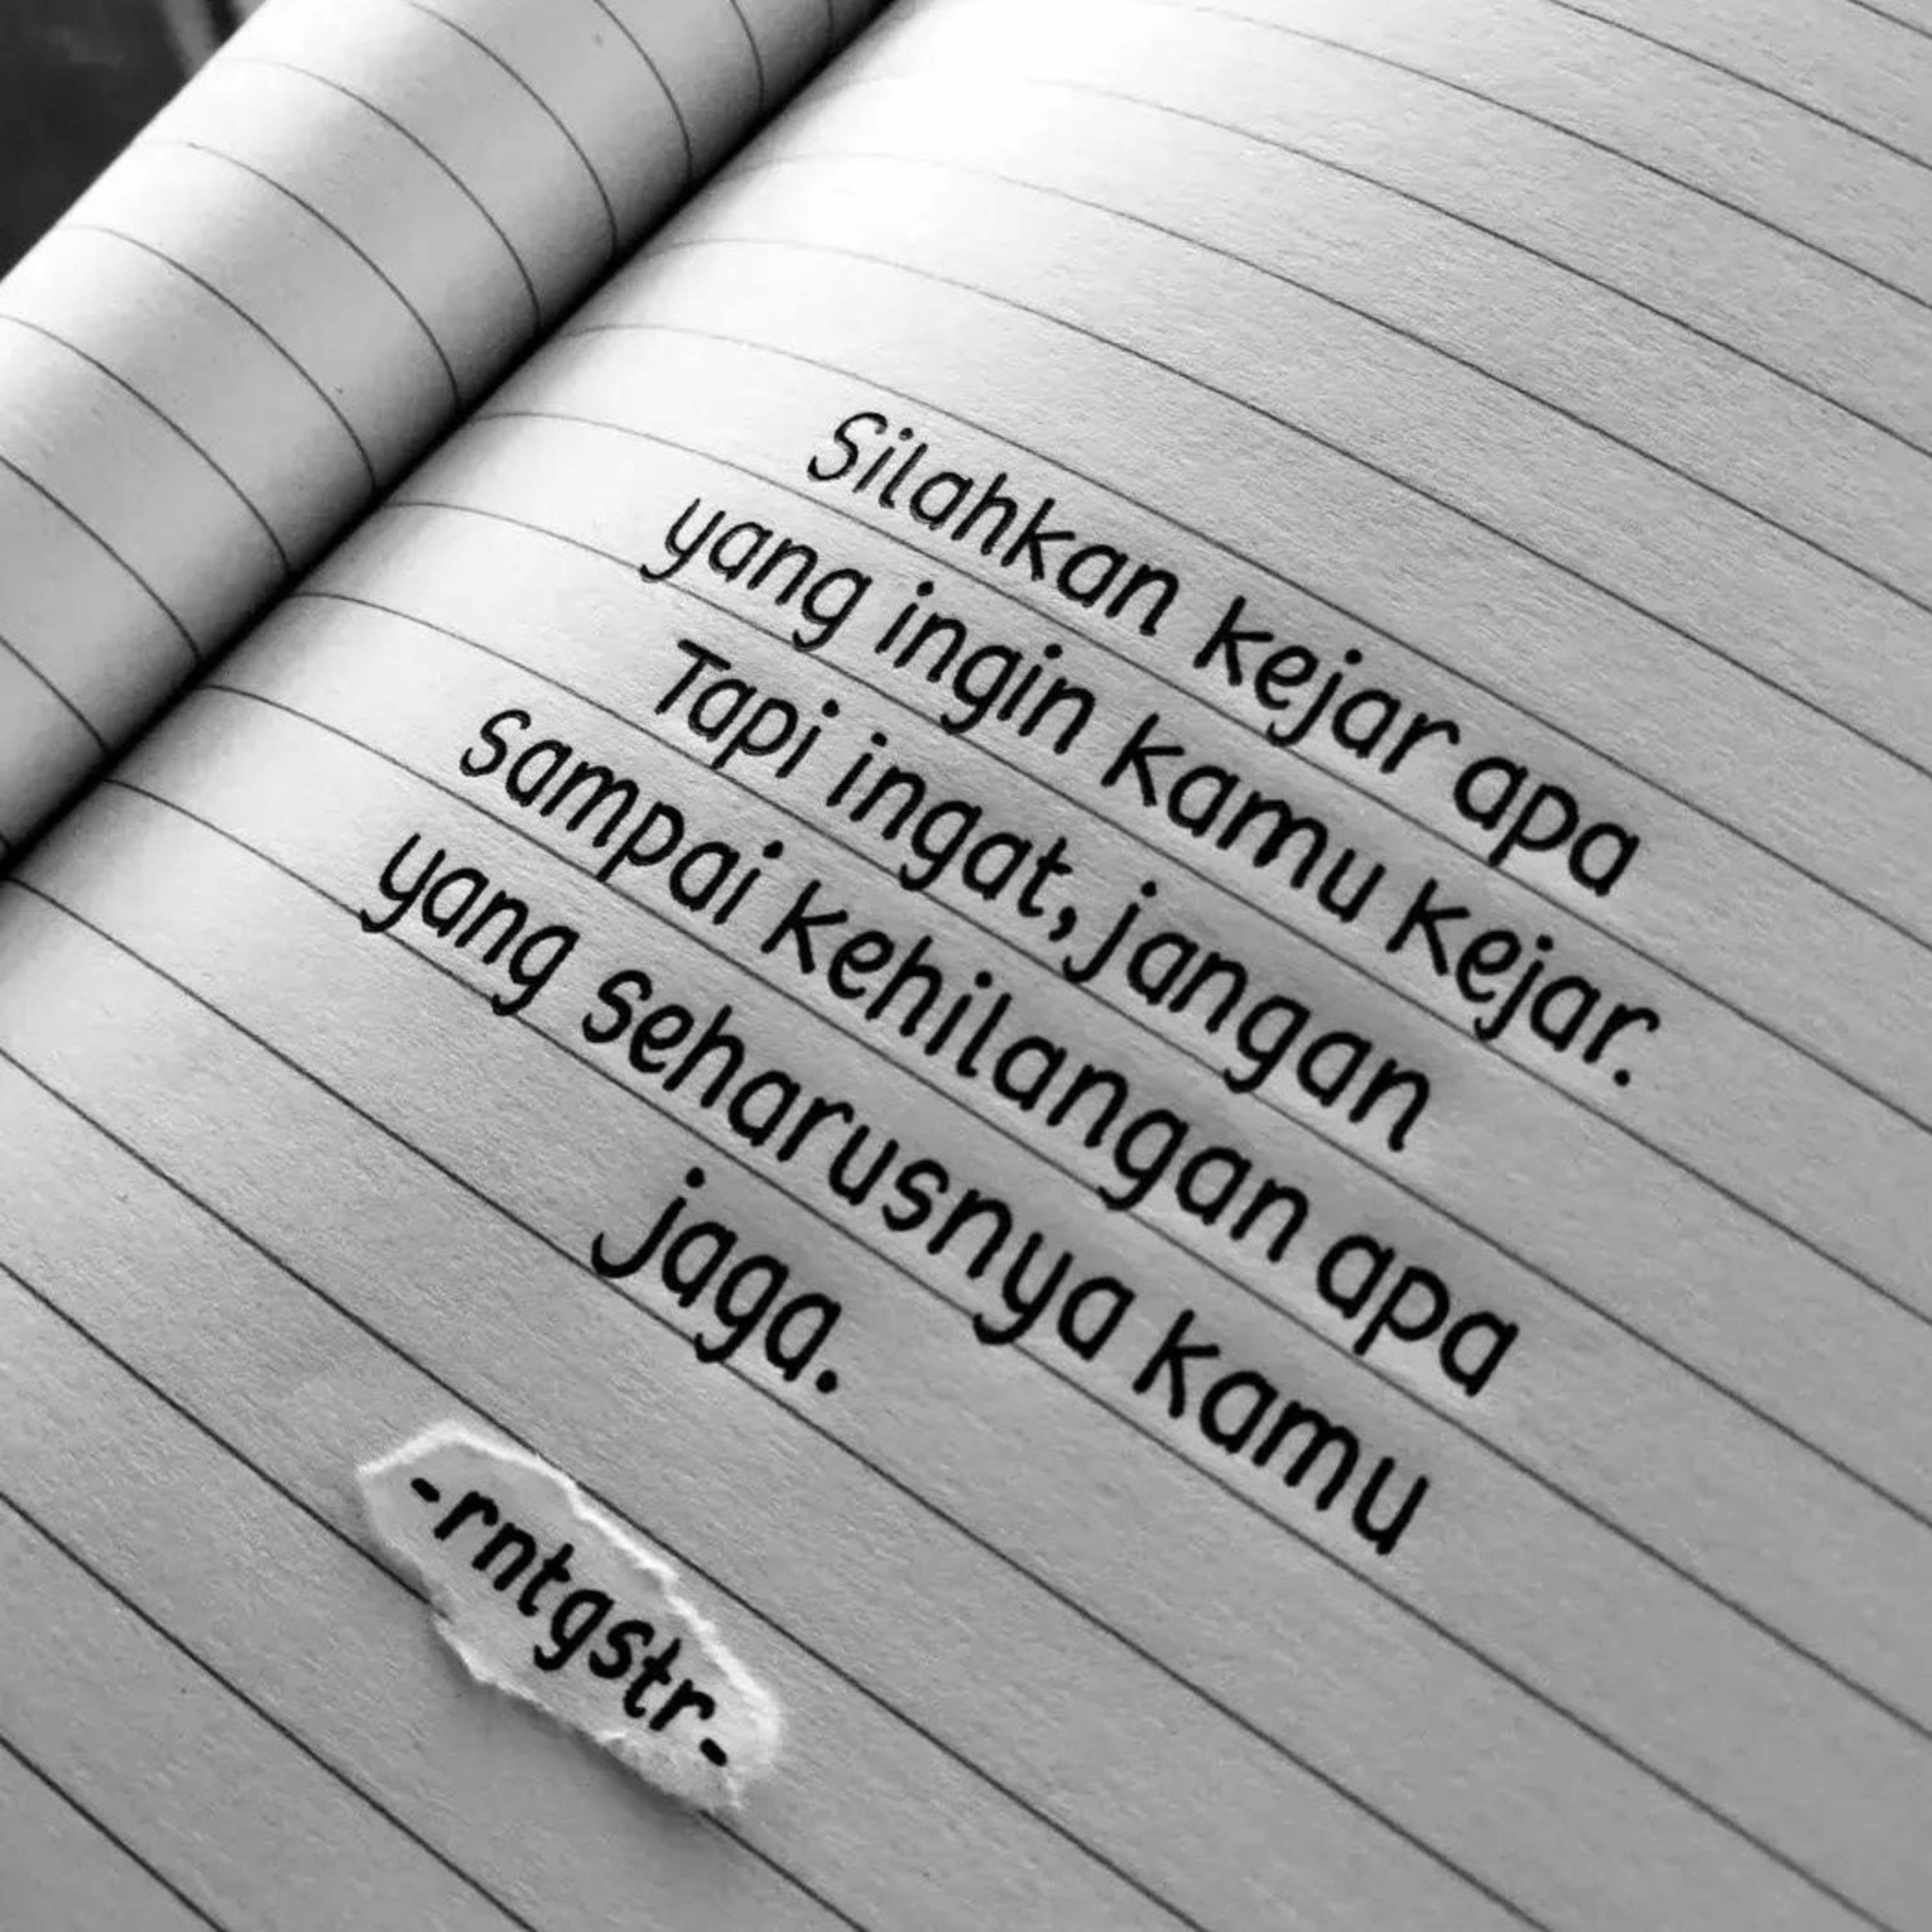 Silahkan kejar apa
yang ingin kamu kejar.
Tapi ingat, jangan
sampai kehilangan apa
yang seharusnya kamu
jaga.
-rntgstr-